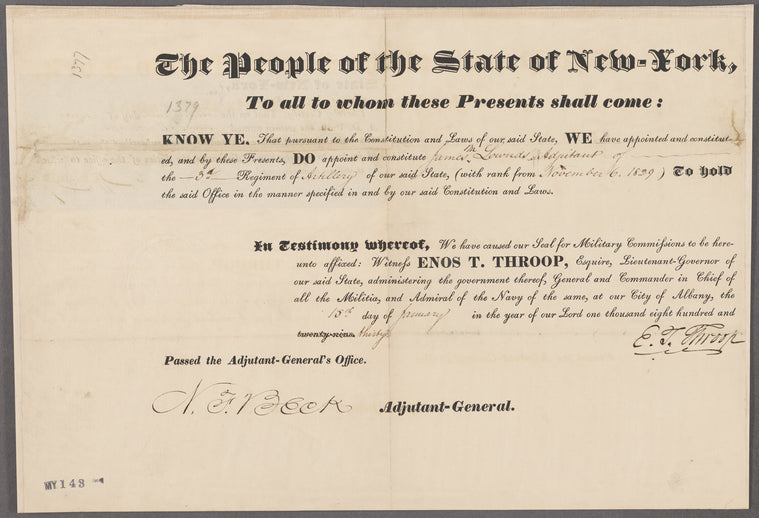 1377
The People of the State of New-York,
1379
To all to whom these Presents shall come:
KNOW YE, That pursuant to the Constitution and Laws of our said State, WE have appointed and constitut-
ed, and by these Presents, DO appoint and constitute James M. Lownds Adjutant of
the 3d Regiment of Artillery of our said State, (with rank from November 6, 1829) To hold
the said Office in the manner specified in and by our said Constitution and Laws.
In Testimony whereof, We have caused our Seal for Military Commissions to be here-
unto affixed: Witness ENOS T. THROOP, Esquire, Lieutenant-Governor of
our said State, administering the government thereof, General and Commander in Chief of
all the Militia, and Admiral of the Navy of the same, at our City of Albany, the
15th day of January in the year of our Lord one thousand eight hundred and
twenty-nine thirty
E. T. Throop
Passed the Adjutant-General's Office.
N. F. Beck Adjutant-General.
MY 143